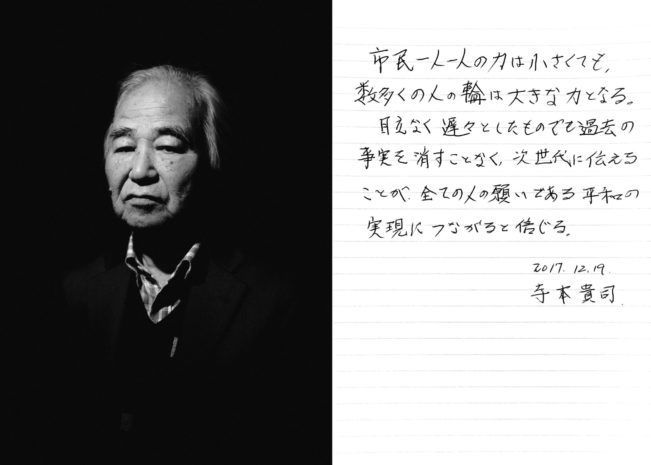 市民一人一人の力は小さくても、
数多くの人の輪は大きな力となる。
目立たなく遅々としたものでも過去の
事実を消すことなく、次世代に伝える
ことが、全ての人の願いである平和の
実現につながると信じる。
2017. 12. 19.
寺本貴司